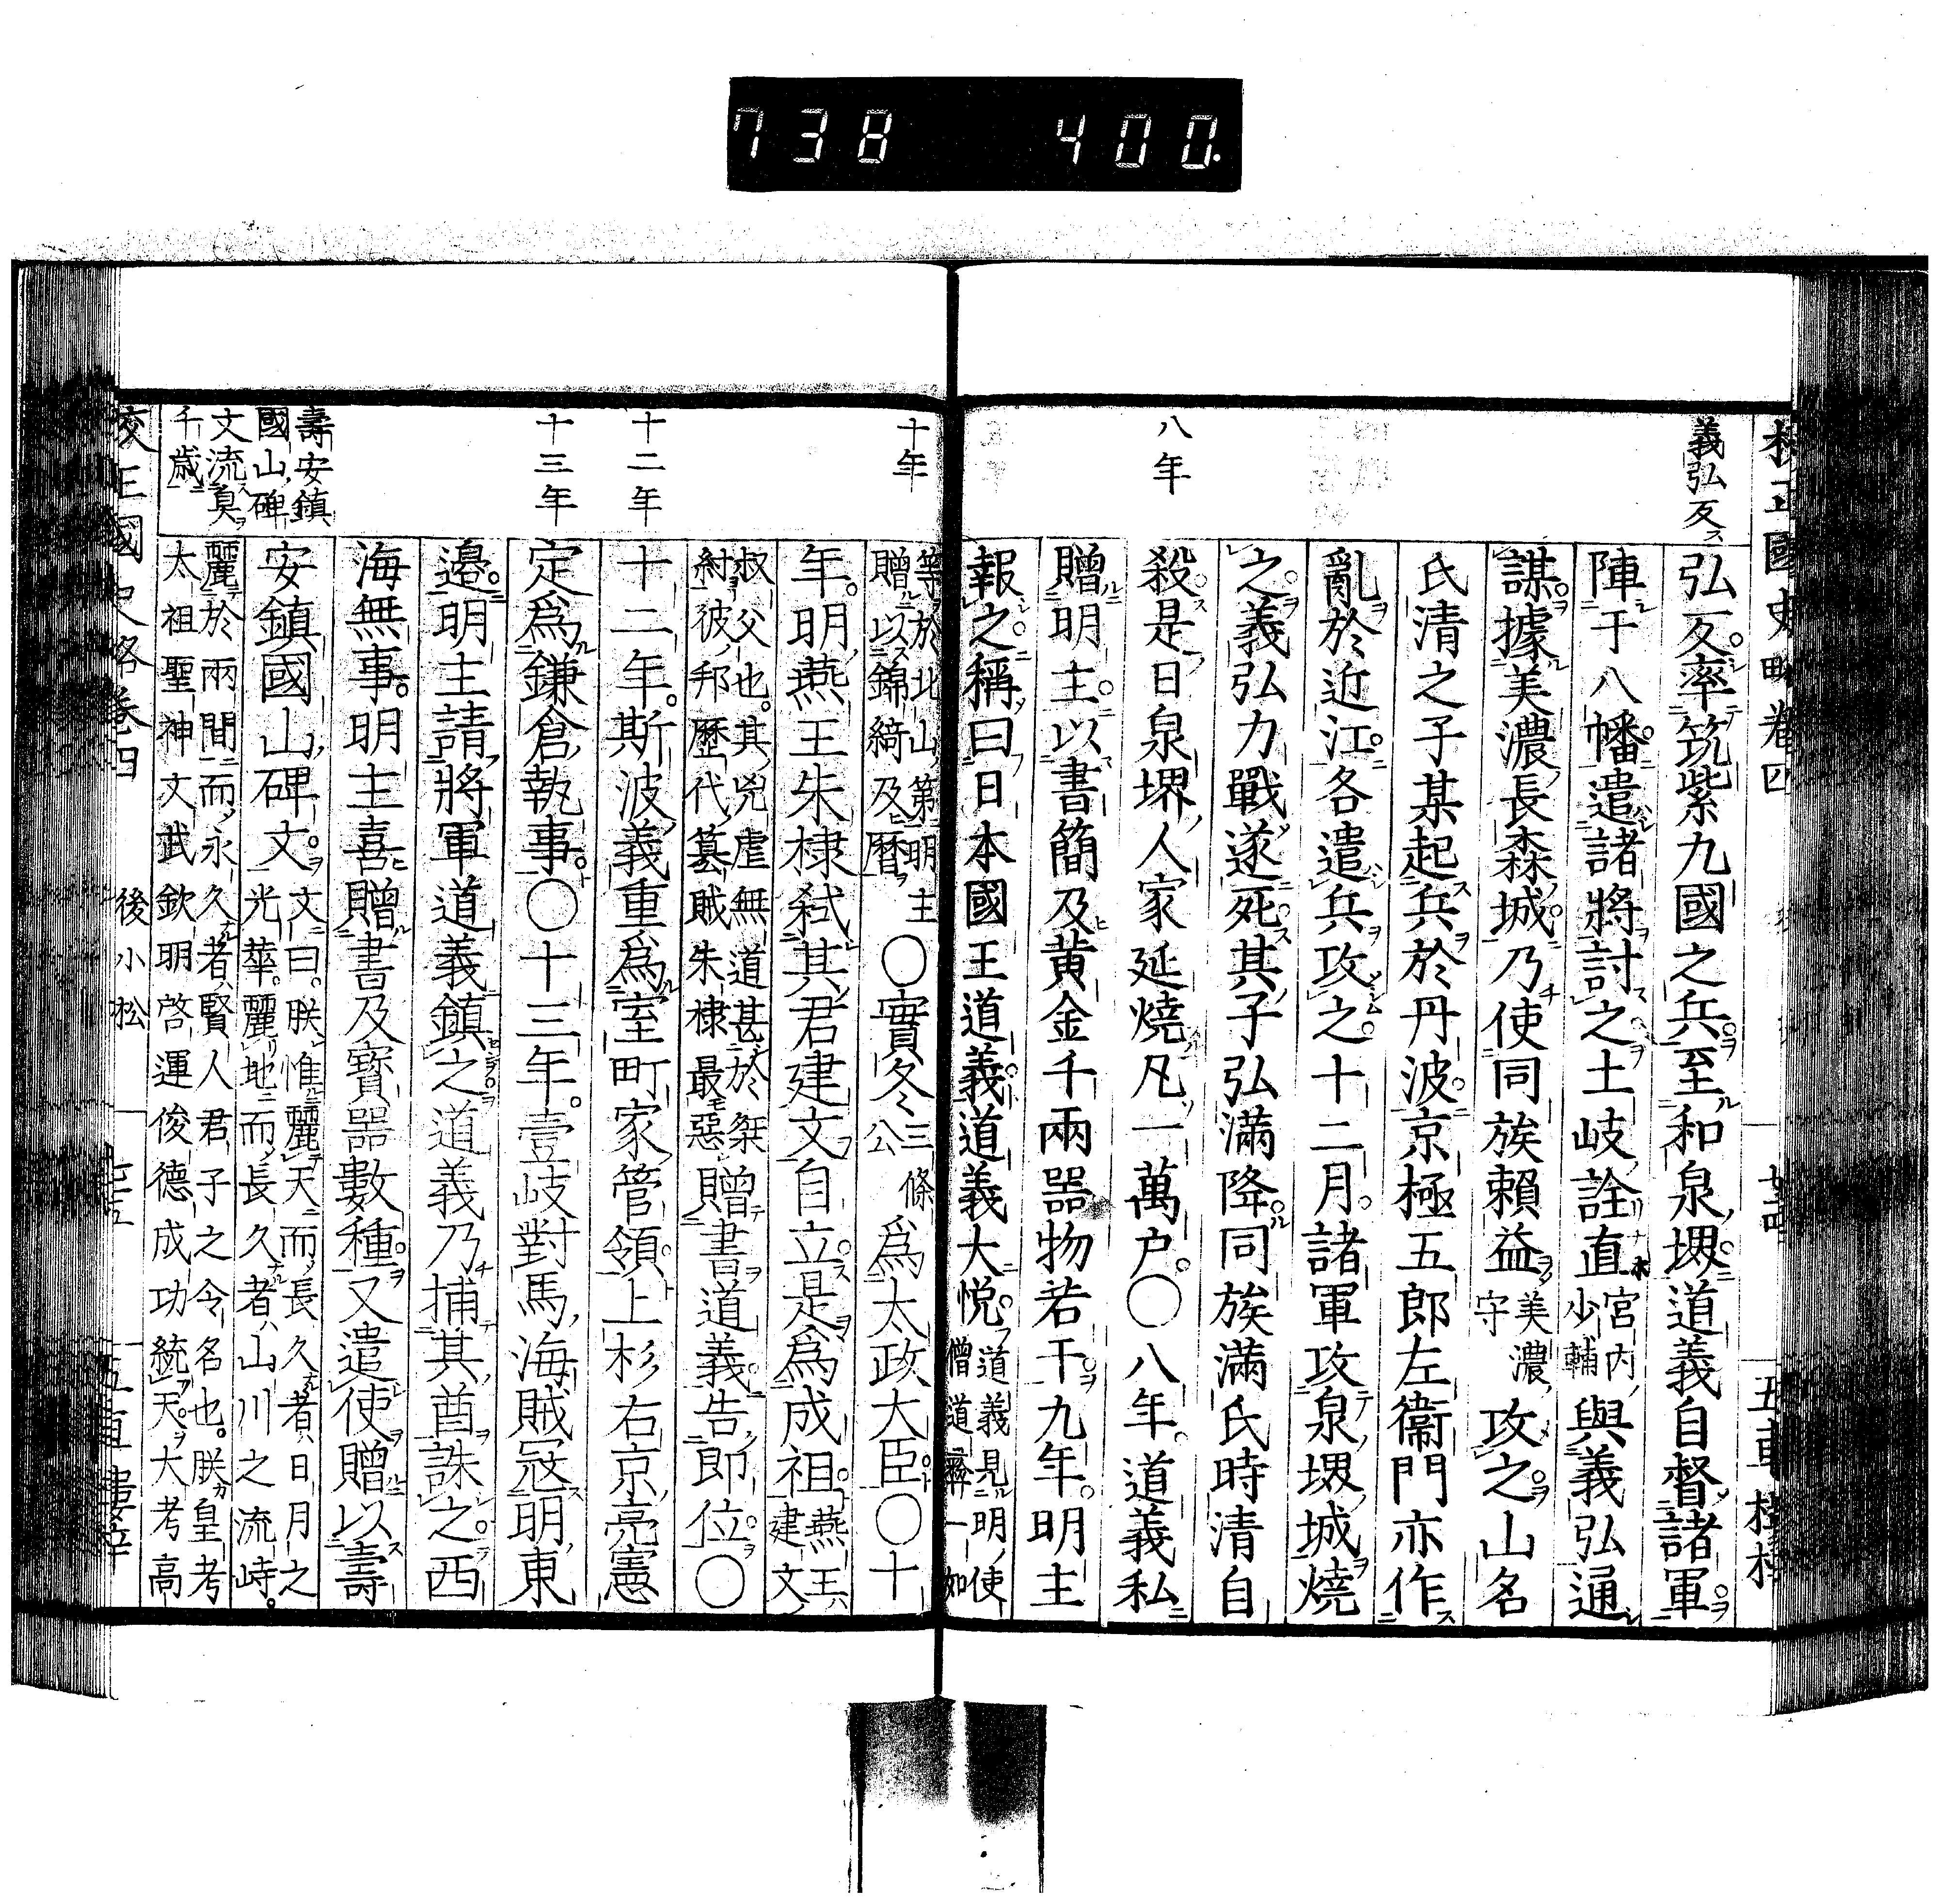 738 400.
校正國史略卷四
五車樓梓
義弘反
弘反率筑紫九國之兵至和泉堺道義自督諸軍
陣于八幡遣諸將討之土岐詮直宮內少輔與義弘通
謀據美濃長森城乃使同族賴益美濃守攻之山名
氏清之子某起兵於丹波京極五郎左衞門亦作
亂於近江各遣兵攻之十二月諸軍攻泉堺城燒
之義弘力戰遂死其子弘滿降同族滿氏時清自
殺是日泉堺人家延燒凡一萬户〇八年道義私
八年
贈明主以書簡及黃金千兩器物若干九年明主
報之稱曰日本國王道義道義大悅道義見明使僧道彝一如
等於北山第明主贈以錦綺及曆〇實冬三條公爲太政大臣〇十
十年
年明燕王朱棣弑其君建文自立是爲成祖燕王建文
叔父也其兇虐無道甚於桀紂彼邦歷代篡賊朱棣最惡贈書道義告即位〇
十二年斯波義重爲室町家管領上杉右京亮憲
十二年
定爲鎌倉執事〇十三年壹岐對馬海賊寇明東
十三年
邉明主請將軍道義鎮之道義乃捕其酋誅之西
海無事明主喜贈書及寶器數種又遣使贈以壽
壽安鎮
國山碑
文流臭
千歲
安鎮國山碑文文曰朕惟麗天而長久者日月之光華麗地而長久者山川之流峙
麗於兩間而永久者賢人君子之令名也朕皇考太祖聖神文武欽明啓運俊德成功統天大考高
校正國史略卷四
後小松
五車樓梓